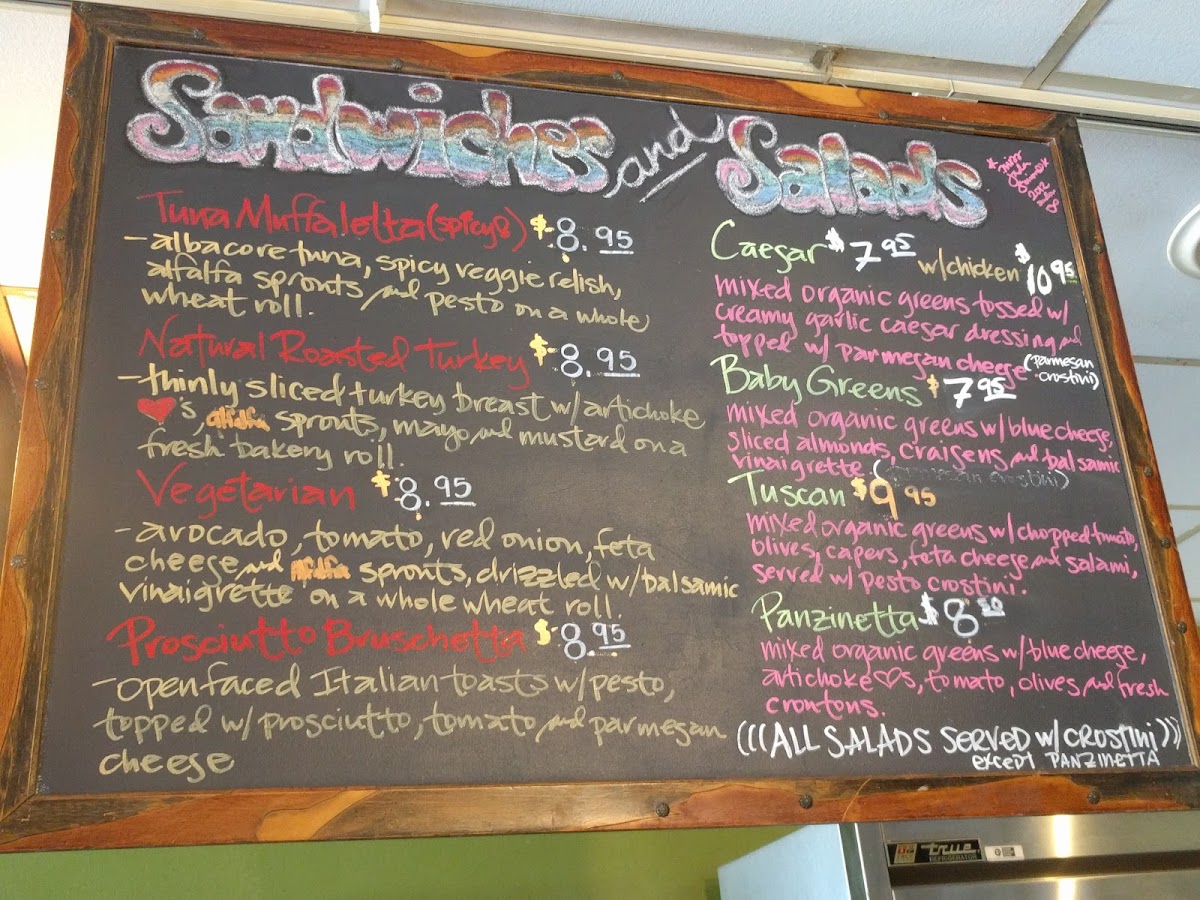 Sandwiches and Salads
Tuna Muffaletta (spicy8) $8.95
- albacore tuna, spicy veggie relish,
alfalfa sprouts and pesto on a whole
wheat roll.
Natural Roasted Turkey $8.95
- thinly sliced turkey breast w/ artichoke
♥'s, alfalfa sprouts, mayo and mustard on a
fresh bakery roll.
Vegetarian $8.95
- avocado, tomato, red onion, feta
cheese and Alfalfa sprouts, drizzled w/ balsamic
vinaigrette on a whole wheat roll.
Prosciutto Bruschetta $8.95
- open faced Italian toasts w/ pesto,
topped w/ prosciutto, tomato and parmesan
cheese
Caesar $7.95 w/ chicken $10.95
mixed organic greens tossed w/
creamy garlic caesar dressing and
topped w/ parmegan cheese (parmesan
crostini)
Baby Greens $7.95
mixed organic greens w/ blue cheese,
sliced almonds, craisens and balsamic
vinaigrette (parmesan crostini)
Tuscan $9.95
mixed organic greens w/ chopped tomato,
olives, capers, feta cheese and salami,
served w/ pesto crostini.
Panzinetta $8.50
mixed organic greens w/ blue cheese,
artichoke ♡s, tomato, olives and fresh
croutons.
(((ALL SALADS SERVED w/ CROSTINI)))
except PANZINETTA
true
REFRIGERATOR